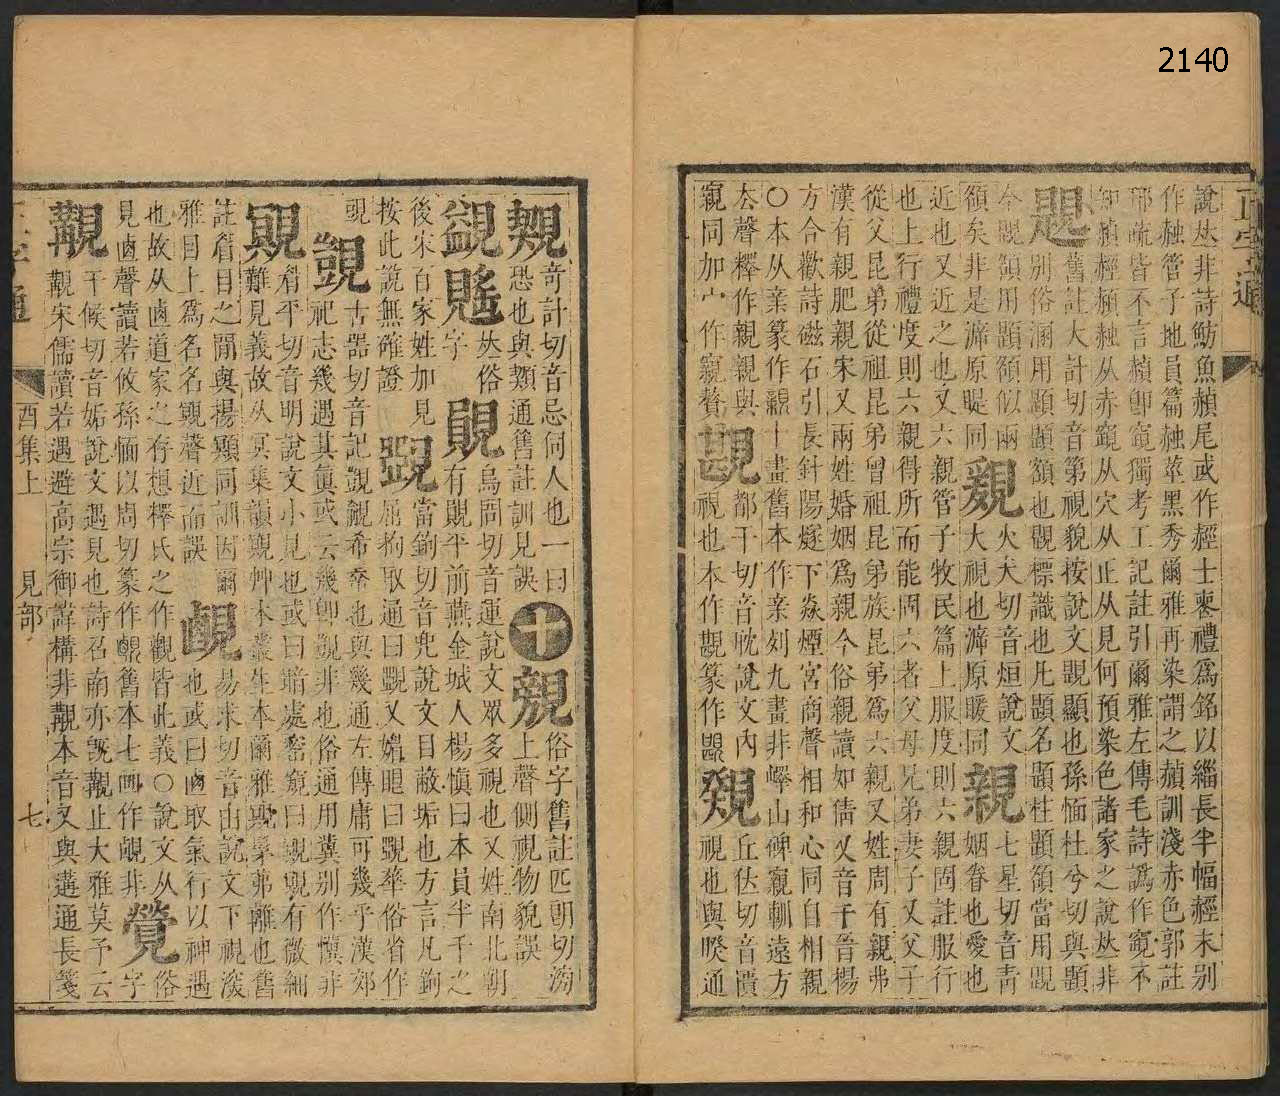 2140
正字通
說𠀤非詩魴魚赬尾或作䞓士喪禮爲銘以緇長半幅䞓末别
作赨管子地員篇赨莖黑秀爾雅再染謂之赬訓淺赤色郭註
邢疏皆不言赬卽竀獨考工記註引爾雅左傳毛詩譌作竀不
知赬䞓赪赨从赤竀从穴从正从見何預染色諸家之說𠀤非
題舊註大計切音第視貌按說文題顯也孫愐杜兮切與題
別俗溷用題題額也題標識也凡題名題柱題額當用題
今題額用顯額似兩
額矣非是漽原睼同䚙火犬切音烜說文
大視也漽原暖同親七星切音靑
姻眷也愛也
近也又近之也又六親管子牧民篇上服度則六親固註服行
也上行禮度則六親得所而能固六者父母兄弟妻子又父子
從父昆弟從祖昆弟曾祖昆弟族昆弟爲六親又姓周有親弗
漢有親肥親宋又兩姓婚姻爲親今俗親讀如倩又音千晉楊
方合歡詩磁石引長針陽燧下炎煙宮商聲相和心同自相親
〇本从亲篆作親十畫舊本作亲刻九畫非嶧山碑竀輈遠方
去聲釋作親親與
竀同加宀作竀贅䚂都干切音耽說文內
視也本作䚂篆作䚂䙆丘佉切音匱
視也與睽通
䙪奇計切音忌伺人也一曰
恐也與䫏通舊註訓見誤十覫俗字舊註匹朗切滂
上聲側視物貌誤
䚀覞𠀤俗
字䚋烏閒切音運說文眾多視也又姓南北朝
有覞平前燕金城人楊愼曰本員半千之
後宋百家姓加見當鉤切音兜說文目蔽垢也方言凡鉤
按此說無確證䚉屈拘取通曰䚉又媢眼曰䚉䒶俗省作
覗古器切音記覬覦希幸也與幾通左傳庸可幾乎漢郊
覬祀志幾遇其眞或云幾卽覬非也俗通用冀别作懻非
覭眉平切音明說文小見也或曰暗處密窺曰覭覭有微細
難見義故从冥集韻覭艸木叢生本爾雅覭髳茀離也舊
註眉目之閒與揚顯同訓因爾
雅目上爲名名覭聲近而誤䚃易求切音由說文下視深
也或曰卥取氣行以神遇
也故从卥道家之存想釋氏之作觀皆此義〇說文从
見卥聲讀若攸孫愐以周切篆作䚃舊本七畫作䚃非覺俗
字
覯干候切音姤說文遇見也詩召南亦旣覯止大雅莫予云
覯宋儒讀若遇避高宗御諱構非覯本音又與遘通長箋
酉集上
見部
七
正字通